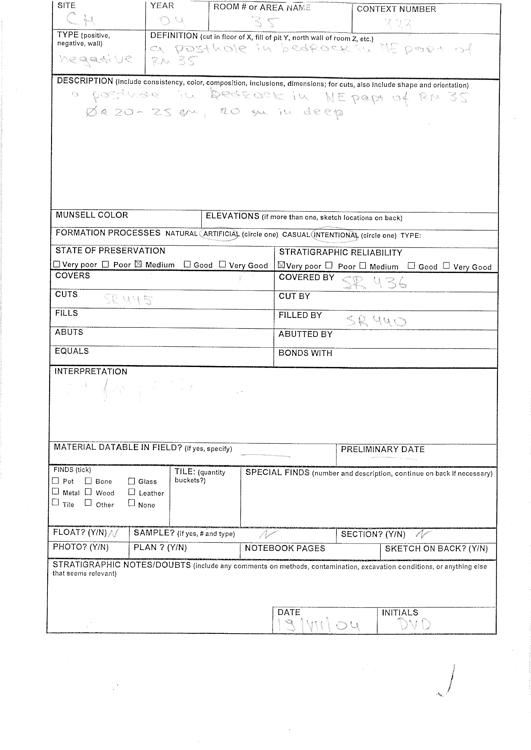 SITE YEAR ROOM # or AREA NAME CONTEXT NUMBER
CH 04 35
TYPE (positive, negative, wall) DEFINITION (cut in floor of X, fill of pit Y, north wall of room Z, etc.)
negative a posthole in bedrock in NE part of
RM 35
DESCRIPTION (include consistency, color, composition, inclusions, dimensions; for cuts, also include shape and orientation)
a posthole in bedrock in NE part of RM 35
Ø 20-25 cm, 20 cm in deep
MUNSELL COLOR ELEVATIONS (if more than one, sketch locations on back)
FORMATION PROCESSES NATURAL ARTIFICIAL (circle one) CASUAL INTENTIONAL (circle one) TYPE:
STATE OF PRESERVATION STRATIGRAPHIC RELIABILITY
☐ Very poor ☐ Poor ☒ Medium ☐ Good ☐ Very Good ☒ Very poor ☐ Poor ☐ Medium ☐ Good ☐ Very Good
COVERS COVERED BY SR 436
CUTS SR 445 CUT BY
FILLS FILLED BY SR 440
ABUTS ABUTTED BY
EQUALS BONDS WITH
INTERPRETATION
MATERIAL DATABLE IN FIELD? (if yes, specify) PRELIMINARY DATE
FINDS (tick) TILE: (quantity buckets?) SPECIAL FINDS (number and description, continue on back if necessary)
☐ Pot ☐ Bone ☐ Glass
☐ Metal ☐ Wood ☐ Leather
☐ Tile ☐ Other ☐ None
FLOAT? (Y/N) N SAMPLE? (if yes, # and type) N SECTION? (Y/N) N
PHOTO? (Y/N) PLAN ? (Y/N) NOTEBOOK PAGES SKETCH ON BACK? (Y/N)
STRATIGRAPHIC NOTES/DOUBTS (include any comments on methods, contamination, excavation conditions, or anything else
that seems relevant)
DATE INITIALS
19/VII/04 DVD